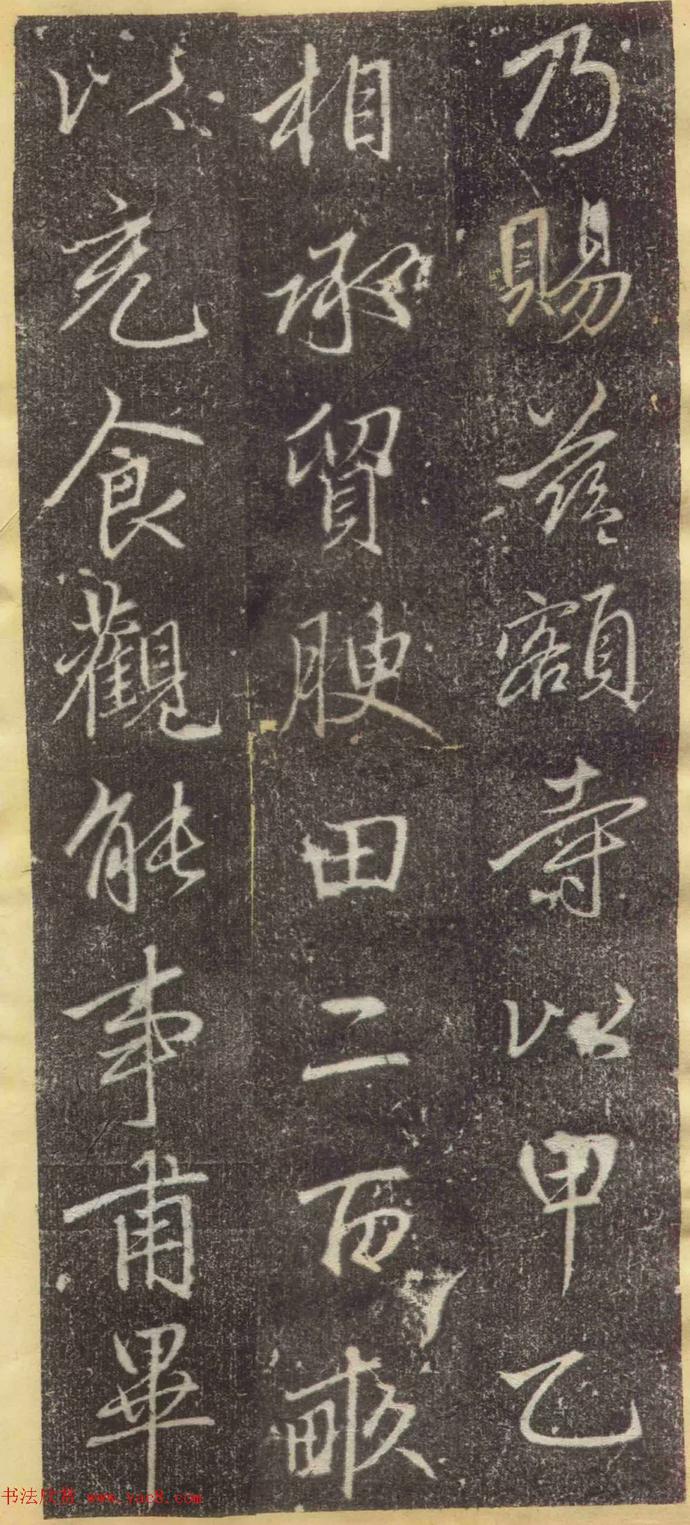 乃賜茲額寺以甲乙
相承貿腴田二百畝
以充食觀能事甫畢
书法欣赏 www.yac8.com